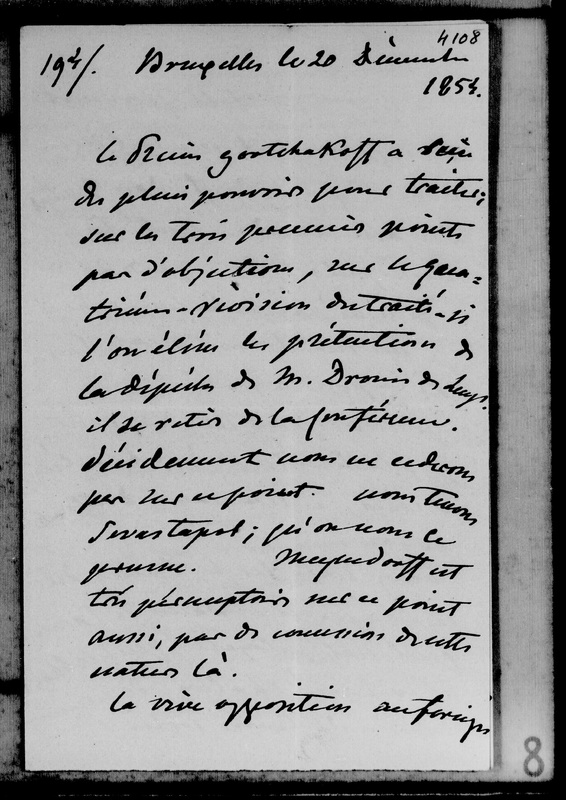 4108
19 4/. Bruxelles le 20 Décembre
1854.
Le Prince Gortchakoff a reçu
des pleins pouvoirs pour traiter;
sur les trois premiers points
pas d'objections, sur le qua-
trième - révision du traité - si
l'on élève les prétentions de
la dépêche de M. Drouin de Lhuys.
il se retire de la Conférence.
Décidement nous ne cederons
pas sur ce point. nous tenons
Sevastapol; qu'on nous le
prenne. Meyendorff est
très péremptoire sur ce point
aussi, pas de concession de cette
nature là.
La vive opposition au foreign
8